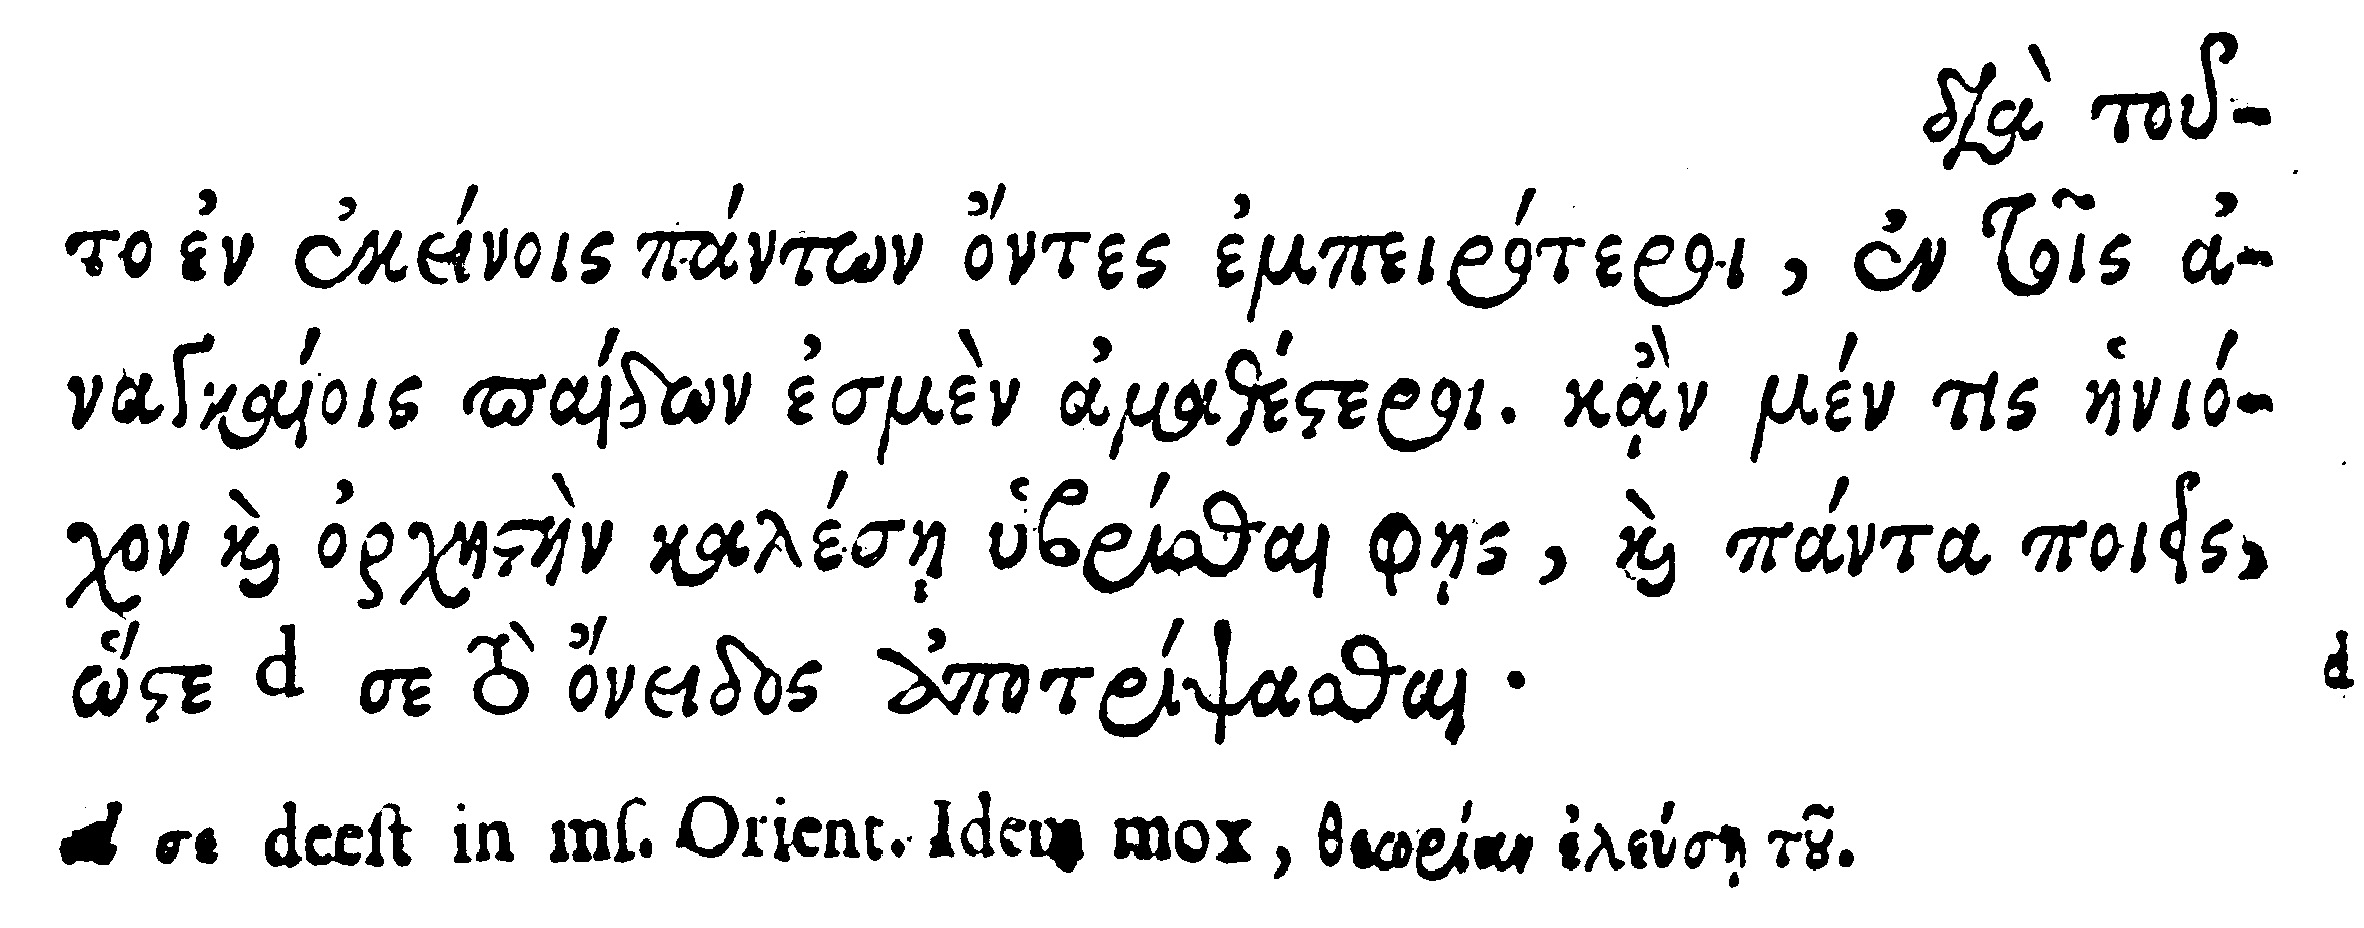 διὰ τοῦ-
το ἐν ἐκείνοις πάντων ὄντες ἐμπειρότεροι, ἐν τοῖς ἀ-
ναγκαίοις παίδων ἐσμὲν ἀμαθέστεροι. κᾂν μέν τις ἡνιό-
χον καὶ ὀρχηστὴν καλέσῃ ὑβρίσθαι φῂς, καὶ πάντα ποιεῖς,
ὥστε d σε τὸ ὄνειδος ἀποτρίψασθαι. d
d σε deest in mſ. Orient. Idem mox, θεωρίαν ἐλεύσῃ τοῦ.